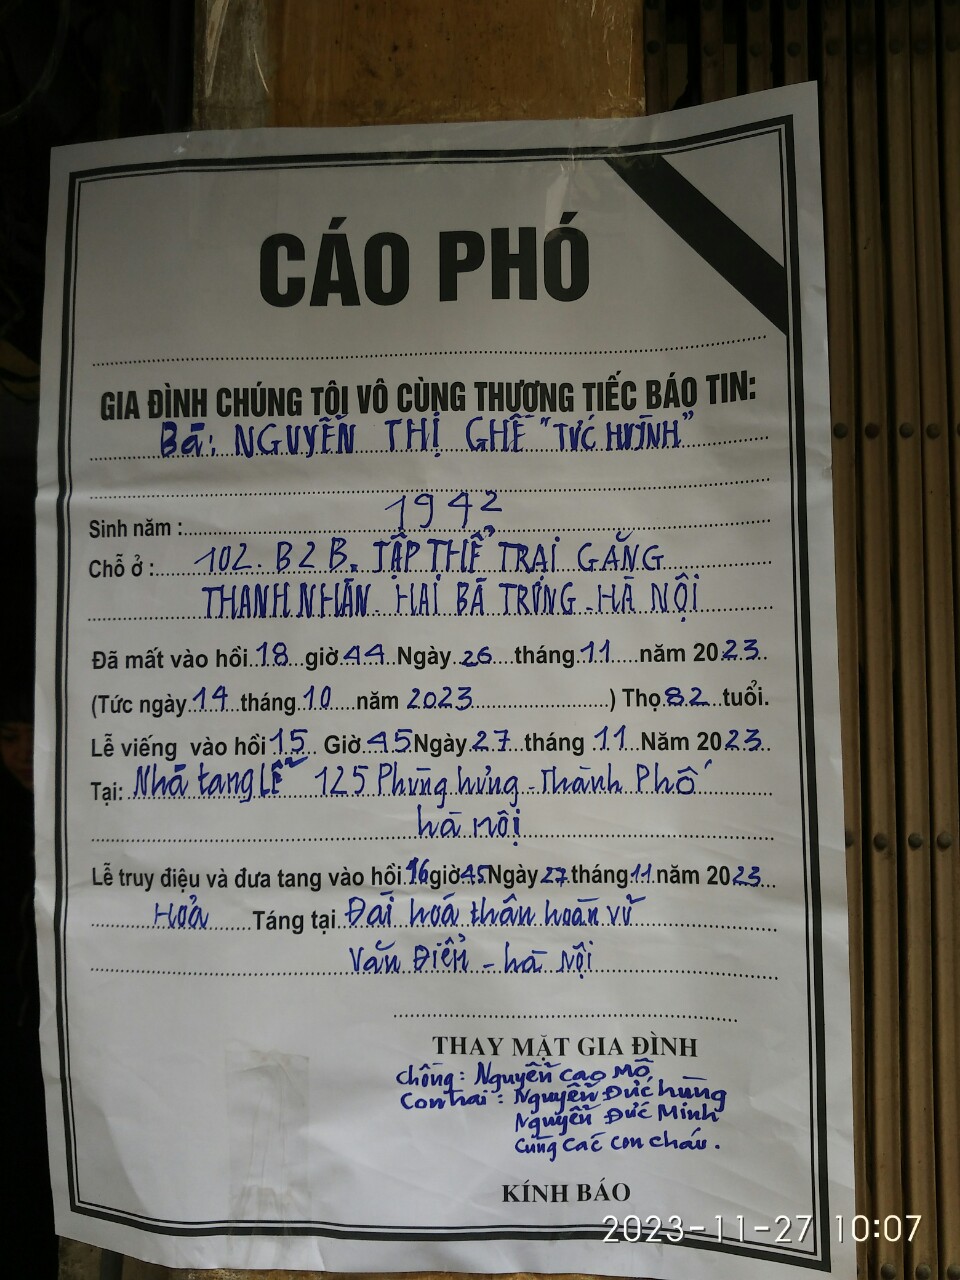 CÁO PHÓ
GIA ĐÌNH CHÚNG TÔI VÔ CÙNG THƯƠNG TIẾC BÁO TIN:
Bà: NGUYỄN THỊ GHẾ "TỨC HUỲNH"
Sinh năm : 1942
Chỗ ở : 102. B2B. TẬP THỂ TRẠI GĂNG
THANH NHÀN - HAI BÀ TRƯNG - HÀ NỘI
Đã mất vào hồi 18 giờ 44 Ngày 26 tháng 11 năm 2023
(Tức ngày 14 tháng 10 năm 2023 ) Thọ 82 tuổi.
Lễ viếng vào hồi 15 Giờ 45 Ngày 27 tháng 11 Năm 2023
Tại: Nhà tang Lễ 125 Phùng hưng - Thành Phố
hà nội
Lễ truy điệu và đưa tang vào hồi 16 giờ 45 Ngày 27 tháng 11 năm 2023
Hoả Táng tại Đài hoá thân hoàn vũ
Văn Điển - hà Nội
THAY MẶT GIA ĐÌNH
Chồng: Nguyễn Cao Mô
Con trai : Nguyễn Đức hùng
Nguyễn Đức Minh
Cùng các con cháu .
KÍNH BÁO
2023-11-27 10:07